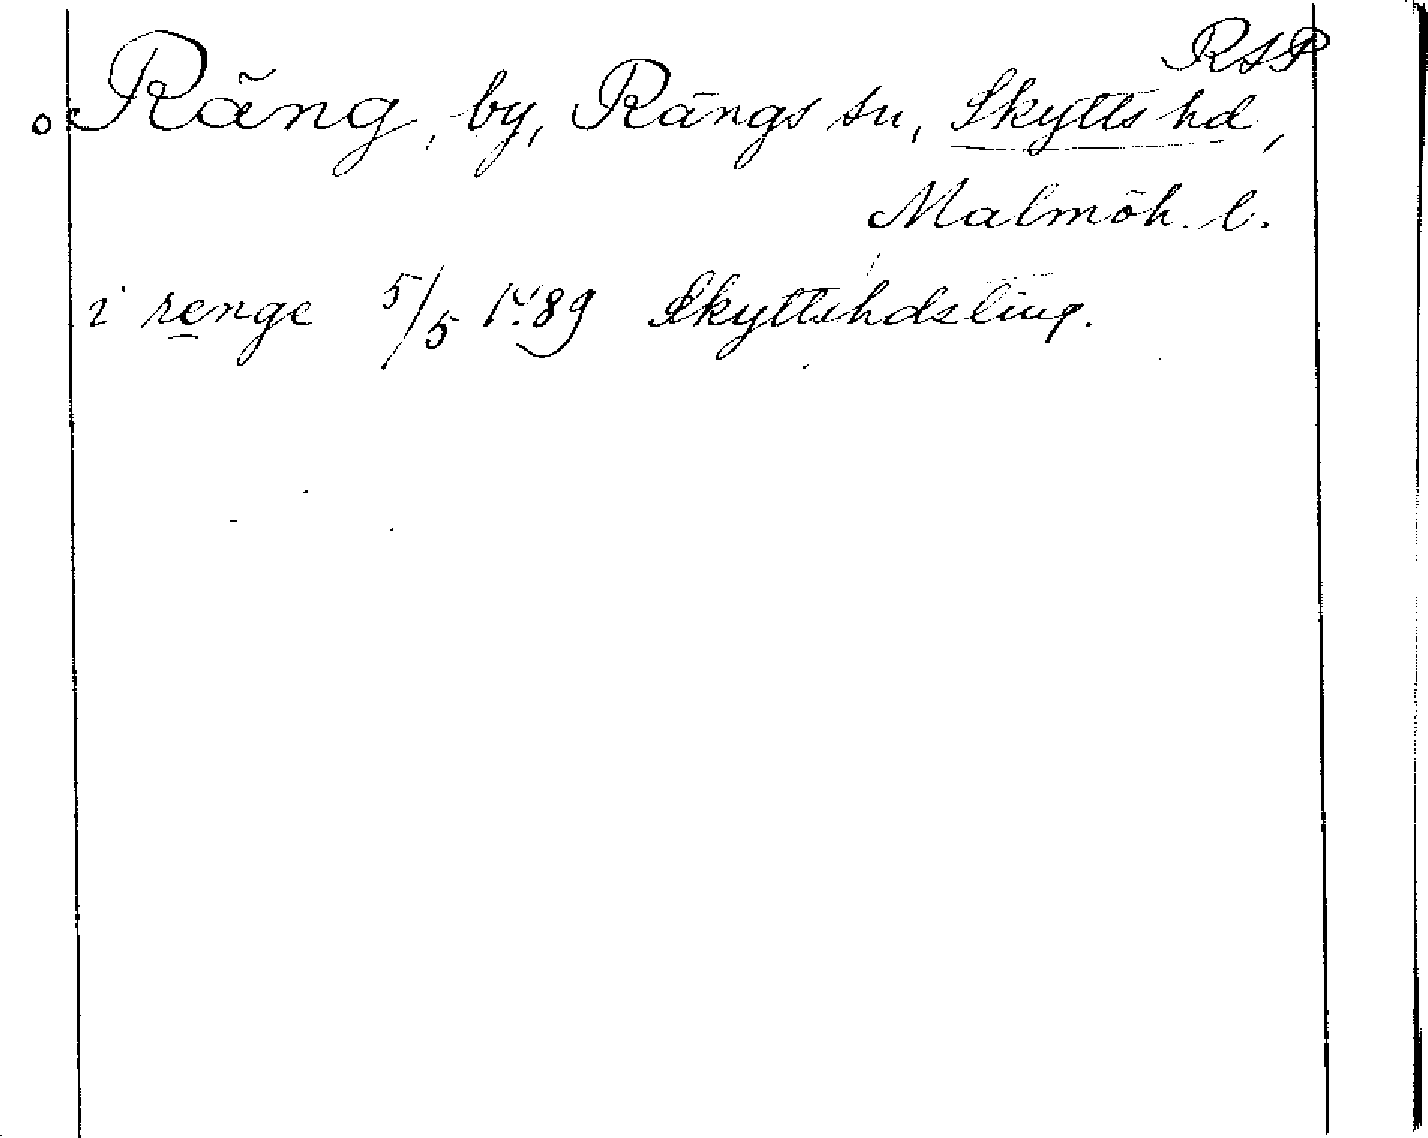 RSP
Räng, by, Rängs sn, Skytts hd,
Malmöh. l.
i renge 5/5 1489 Skyttshdsting.